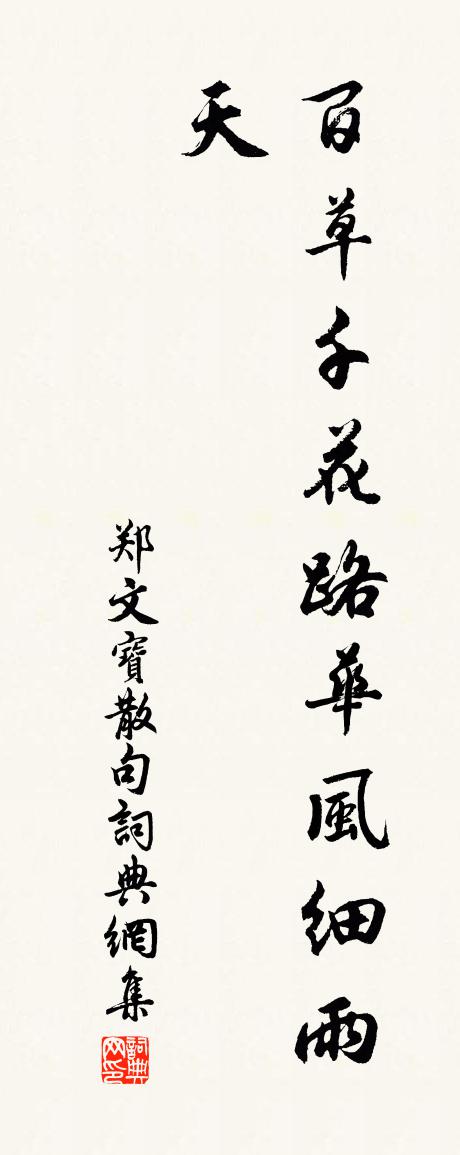 百草千花路華風細雨
天
郑文寳散句詞典網集
詞典网印